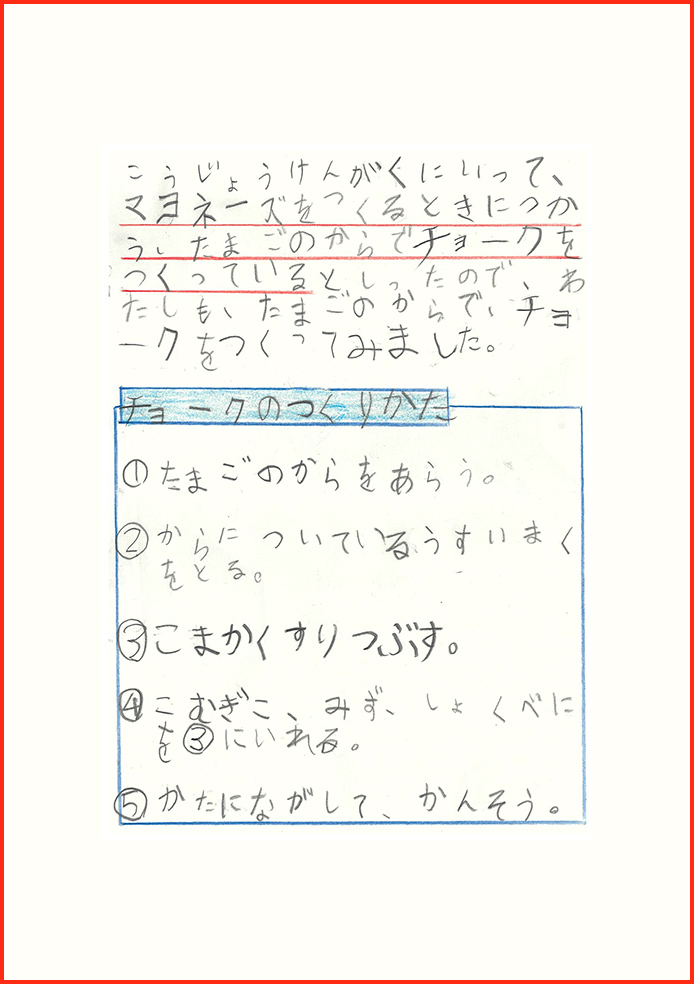 こうじょうけんがくにいって、
マヨネーズをつくるときにつか
う、たまごのからでチョークを
つくっているとしったので、わ
たしも、たまごのからで、チョ
ークをつくってみました。
チョークのつくりかた
①たまごのからをあらう。
②からについているうすいまく
をとる。
③こまかくすりつぶす。
④こむぎこ、みず、しょくべに
を③にいれる。
⑤かたにながして、かんそう。